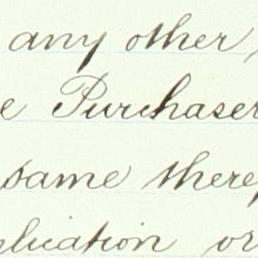 any other
e Purchaser
same there
plication or